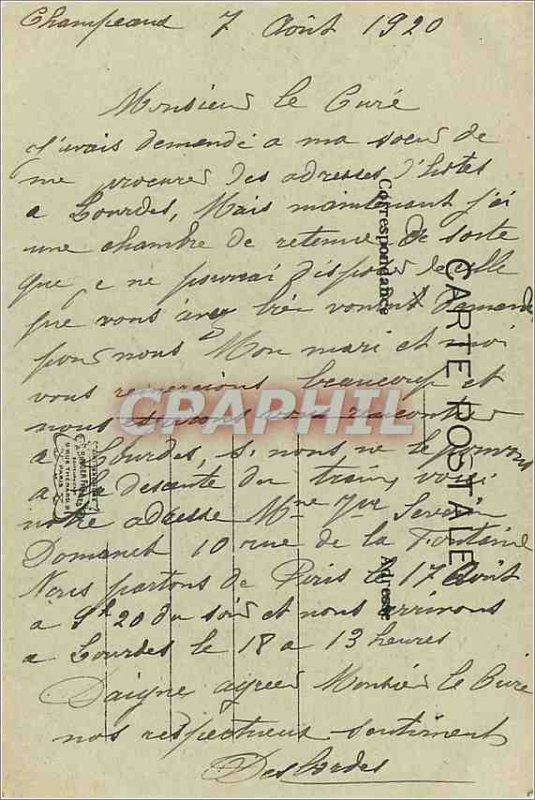 Champeaux 7 Août 1920
Monsieur le Curé
J'avais demandé a ma soeur de
me procurer des adresses d'hotes
a Lourdes, Mais maintenant j'ai
une chambre de retenue de sorte
que je ne pourrai disposer de celle
que vous avez bien voulu demander
pour nous Mon mari et moi
vous remercions beaucoup et
nous vous rencontrer
a Lourdes, si nous ne le pouvons
a la descente du train, voici
notre adresse Mme Vve
Domanet 10 rue de la Fontaine
Nous partons de Paris le 17 Août
à 9h20 du soir et nous arrivons
a Lourdes le 18 a 13 heures
Daigne agreer Monsieur le Curé
nos respectueux sentiment
Desbordes
CARTE POSTALE
Correspondance
Adresse
CPAPHIL
PARIS